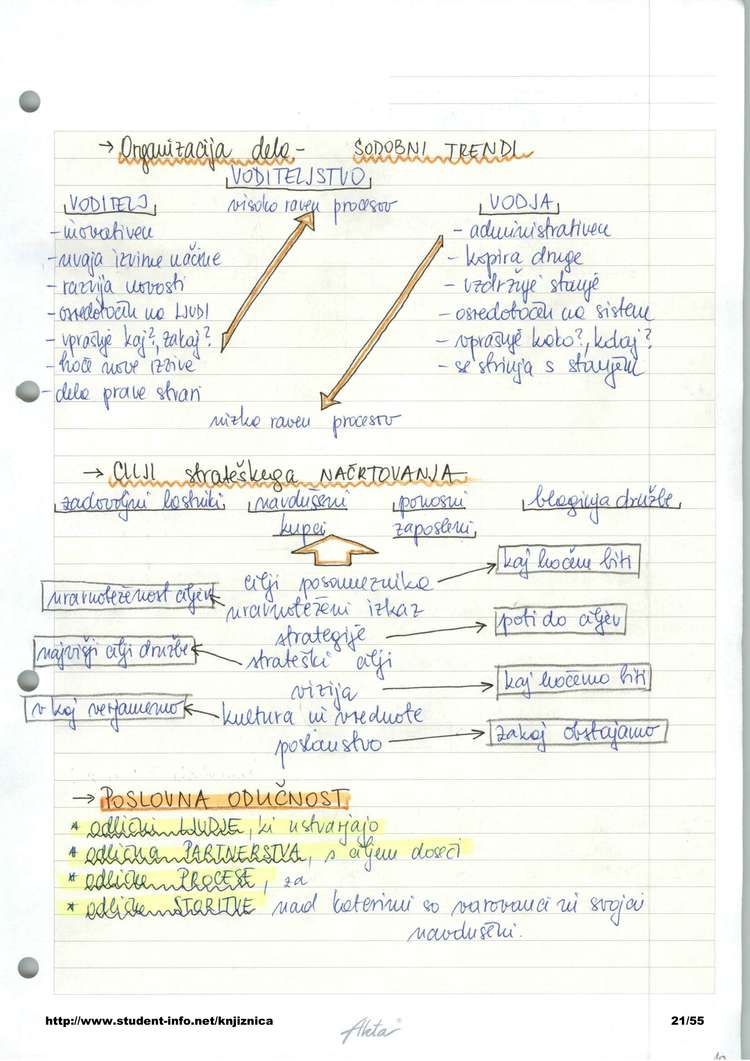 → Organizacija dela - SODOBNI TRENDI
VODITELJSTVO
visoko raven procesov
VODITELJ
- inovativen
- uvaja izvirne načine
- razvija novosti
- osredotočen na LJUDI
- vprašuje kaj?, zakaj?
- hoče nove izzive
- dela prave stvari
VODJA
- administrativen
- kopira druge
- vzdržuje stanje
- osredotočen na sistem
- vprašuje kako?, kdaj?
- se strinja s stanjem
nizko raven procesov
→ CILJI strateškega NAČRTOVANJA
zadovoljni lastniki navdušeni ponosni blaginja družbe
kupci zaposleni
cilji posameznika → kaj hočem biti
uravnoteženost ciljev ← uravnoteženi izkaz
strategije → poti do ciljev
najvišji cilji družbe ← strateški cilji
vizija → kaj hočemo biti
v kaj verjamemo ← kultura in vrednote
poslanstvo → zakaj obstajamo
→ POSLOVNA ODLIČNOST
* odlični LJUDJE, ki ustvarjajo
* odlična PARTNERSTVA, s ciljem doseči
* odlične PROCESE, za
* odlične STORITVE nad katerimi so varovanci in svojci
navdušeni.
http://www.student-info.net/knjiznica
Akta
21/55